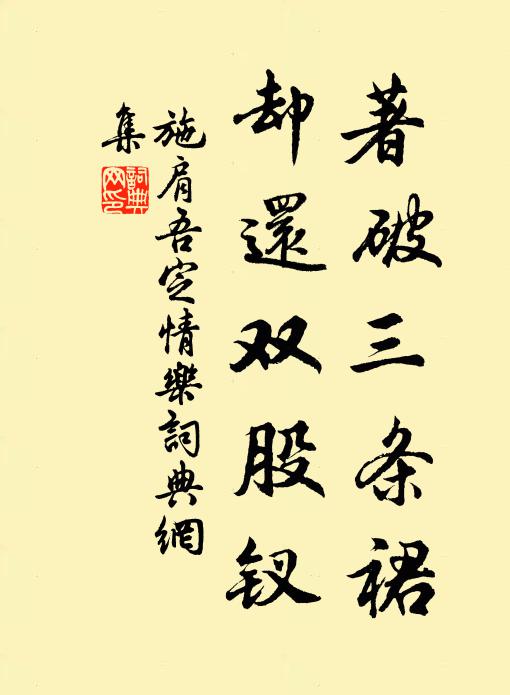 著破三条裙
却還双股钗
施肩吾定情樂詞典網
集
詞典
网印